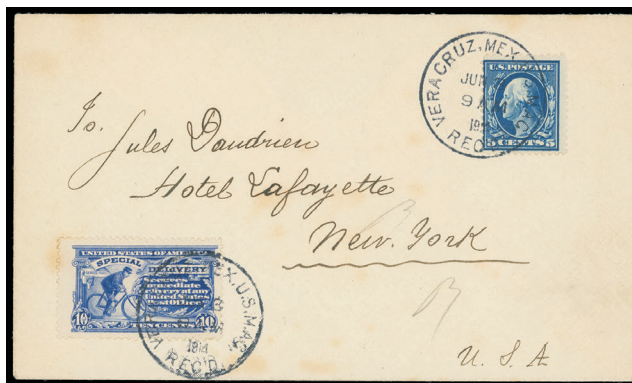 VERA CRUZ, MEX
JUN
9 AM
REC'D
U.S. POSTAGE
5 CENTS 5
To. Jules Daudrien
Hotel Lafayette
New. York
U. S. A
UNITED STATES OF AMERICA
SPECIAL DELIVERY
Secures
immediate
delivery at any
United States
Post Office
10 TEN CENTS 10
MEX. U.S. M. AG.
8
1914
REC'D.